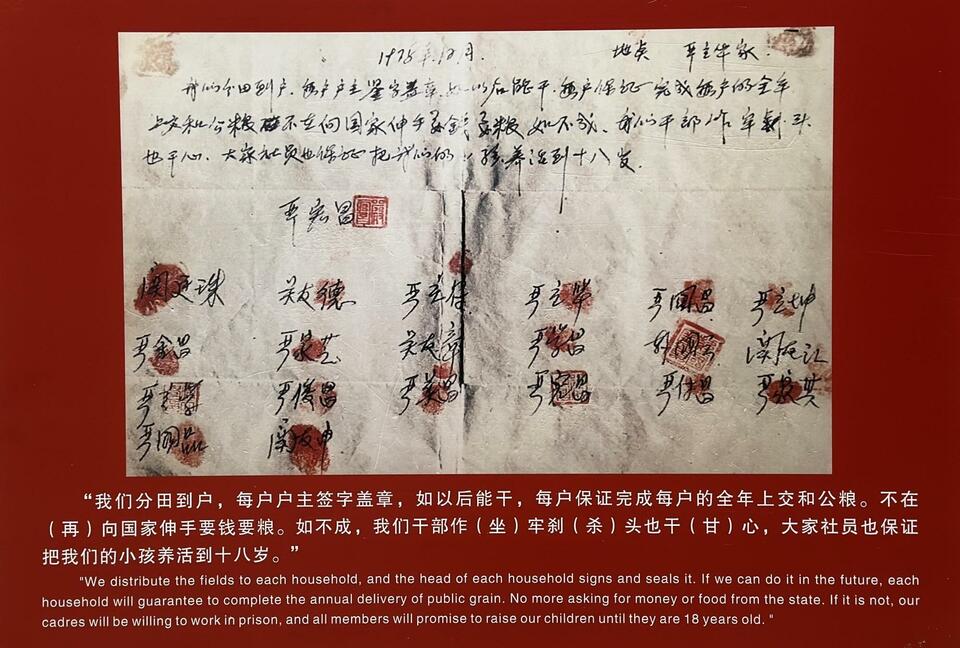 1978年12月. 地点 严立华家.
我们分田到户. 每户户主签字盖章. 如以后能干. 每户保证完成每户的全年
上交和公粮 不在向国家伸手要钱要粮 如不成. 我们干部作牢刹头
也干心. 大家社员也保证把我们的小孩养活到十八岁.
严宏昌
关廷珠 关友德 严立符 严立华 严国昌 严立坤
严金昌 严家芝 关友章 严学昌 韩国云 关友江
严立学 严俊昌 严美昌 严宏昌 严付昌 严家其
严国品 关友申
“我们分田到户，每户户主签字盖章，如以后能干，每户保证完成每户的全年上交和公粮。不在
（再）向国家伸手要钱要粮。如不成，我们干部作（坐）牢刹（杀）头也干（甘）心，大家社员也保证
把我们的小孩养活到十八岁。”
"We distribute the fields to each household, and the head of each household signs and seals it. If we can do it in the future, each
household will guarantee to complete the annual delivery of public grain. No more asking for money or food from the state. If it is not, our
cadres will be willing to work in prison, and all members will promise to raise our children until they are 18 years old. "